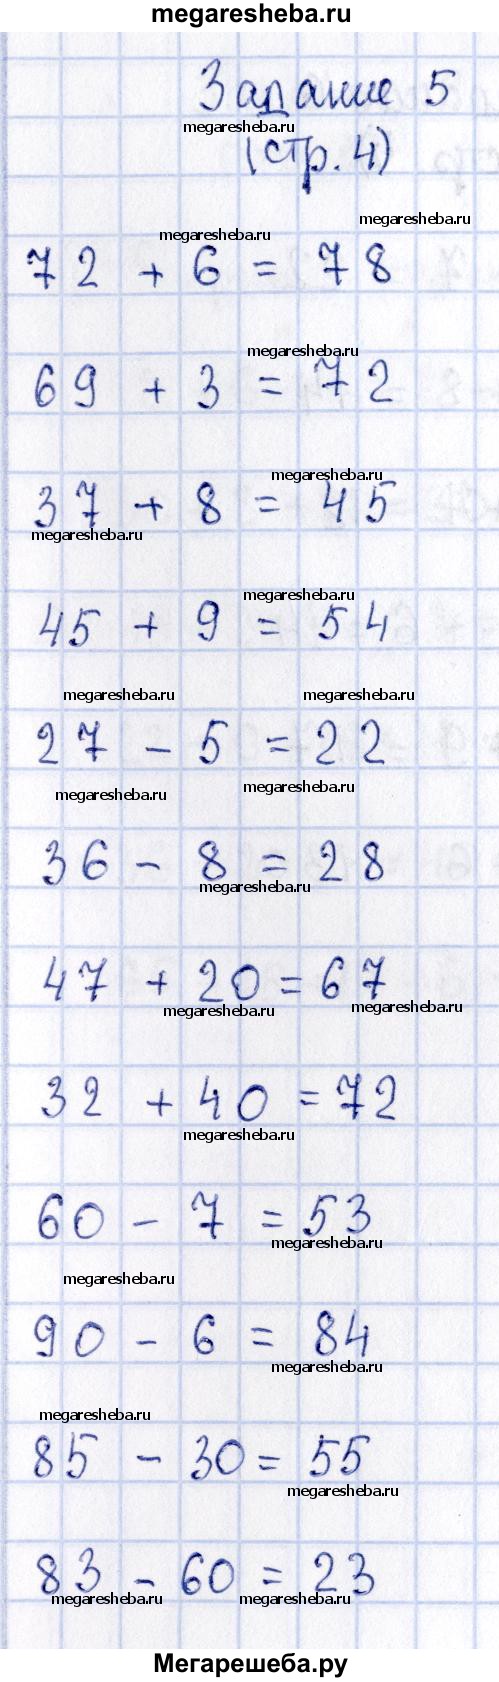 megaresheba.ru
Задание 5
megaresheba.ru
(стр. 4)
megaresheba.ru
megaresheba.ru
72 + 6 = 78
megaresheba.ru
69 + 3 = 72
megaresheba.ru
37 + 8 = 45
megaresheba.ru
megaresheba.ru
45 + 9 = 54
megaresheba.ru megaresheba.ru
27 - 5 = 22
megaresheba.ru megaresheba.ru
36 - 8 = 28
megaresheba.ru
47 + 20 = 67
megaresheba.ru megaresheba.ru
32 + 40 = 72
megaresheba.ru
60 - 7 = 53
megaresheba.ru
megaresheba.ru
90 - 6 = 84
megaresheba.ru
megaresheba.ru
85 - 30 = 55
megaresheba.ru
83 - 60 = 23
megaresheba.ru megaresheba.ru
Мегарешеба.ру